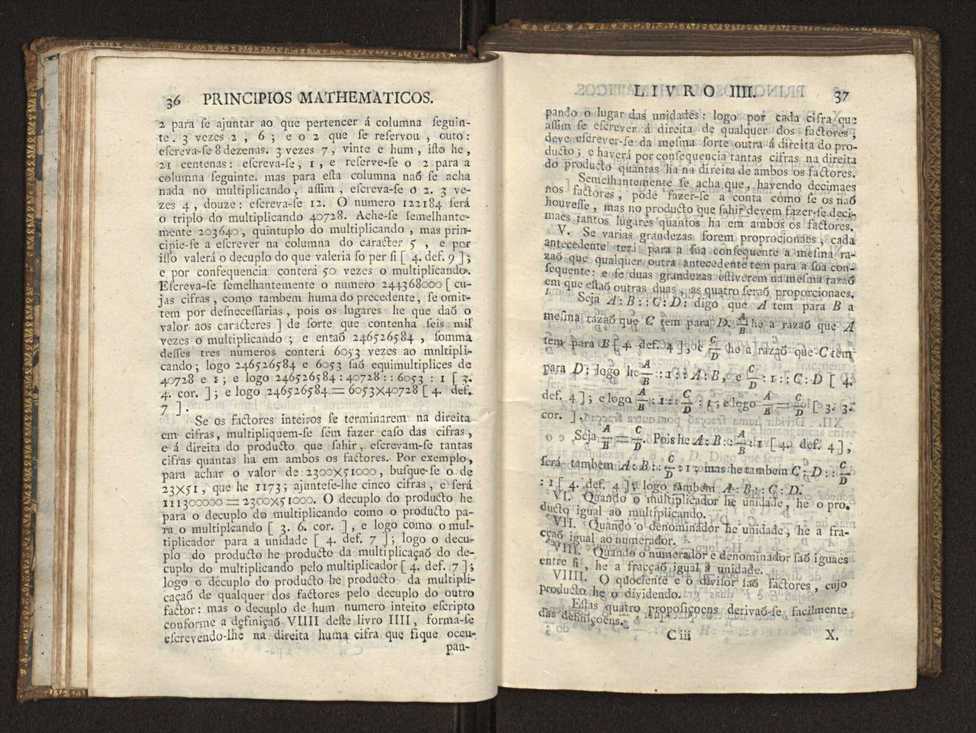 36 PRINCIPIOS MATHEMATICOS.
2 para ſe ajuntar ao que pertencer á columna ſeguin-
te. 3 vezes 2 , 6 ; e o 2 que ſe reſervou , outo:
eſcreva-ſe 8 dezenas. 3 vezes 7, vinte e hum, iſto he,
21 centenas: eſcreva-ſe, 1, e reſerve-ſe o 2 para a
columna ſeguinte. mas para eſta columna naõ ſe acha
nada no multiplicando, aſſim, eſcreva-ſe o 2. 3 ve-
zes 4, douze: eſcreva-ſe 12. O numero 122184 ſerá
o triplo do multiplicando 40728. Ache-ſe ſemelhante-
mente 203640, quintuplo do multiplicando , mas prin-
cipie-ſe a eſcrever na columna do caracter 5 , e por
iſſo valerá o decuplo do que valeria ſo per ſi [ 4. def. 9 ];
e por conſequencia conterá 50 vezes o multiplicando.
Eſcreva-ſe ſemelhantemente o numero 244368000 [ cu-
jas cifras , como tambem huma do precedente, ſe omit-
tem por deſneceſſarias , pois os lugares he que daõ o
valor aos caracteres ] de ſorte que contenha ſeis mil
vezes o multiplicando ; e entaõ 246526584 , ſomma
deſſes tres numeros conterá 6053 vezes ao mnltipli-
cando; logo 246526584 e 6053 ſaõ equimultiplices de
40728 e 1; e logo 246526584:40728::6053 : 1 [ 3.
4. cor. ]; e logo 246526584=6053×40728 [ 4. def.
7 ].
Se os factores inteiros ſe terminarem na direita
em cifras, multipliquem-ſe ſem fazer caſo das cifras,
e á direita do producto, que ſahir, eſcrevam-ſe tantas
cifras quantas ha em ambos os factores. Por exemplo,
para achar o valor de 2300×51000, buſque-ſe o de
23×51, que he 1173; ajunteſe-lhe cinco cifras, e ſerá
111300000=2300×51000. O decuplo do producto he
para o decuplo do multiplicando como o producto pa-
ra o multiplcando [ 3. 6. cor. ], e logo como o mul-
tiplicador para a unidade [ 4. def. 7 ]; logo o decu-
plo do producto he producto da multiplicaçaõ do de-
cuplo do multiplicando pelo multiplicador [ 4. def. 7 ];
logo o decuplo do producto he producto da multipli-
caçaõ de qualquer dos factores pelo decuplo do outro
factor: mas o decuplo de hum numero inteito eſcripto
conforme a definiçaõ VIIII deſte livro IIII, forma-ſe
eſcrevendo-lhe na direita huma cifra que fique occu-
pan-
LIVRO IIII. 37
pando o lugar das unidades: logo por cada cifra que
aſſim ſe eſcrever á direita de qualquer dos factores,
deve eſcrever-ſe da meſma ſorte outra á direita do pro-
ducto; e haverá por conſequencia tantas cifras na direita
do producto quantas ha na direita de ambos os factores.
Semelhantemente ſe acha que, havendo decimaes
nos factores, póde fazer-ſe a conta como ſe os naõ
houveſſe, mas no producto que ſahir devem fazer-ſe deci-
maes tantos lugares quantos ha em ambos os factores.
V. Se varias grandezas forem proprocionaes, cada
antecedente terá para a ſua conſequente a meſma ra-
zaõ que qualquer outra antecedente tem para a ſua con-
ſequente: e ſe duas grandezas eſtiverem na meſma razaõ
em que eſtaõ outras duas, as quatro ſeraõ proporcionaes.
Seja A:B::C:D: digo que A tem para B a
meſma razaõ que C tem para D. A/B he a razaõ que A
tem para B [ 4. def. 4 ], e C/D he a razaõ que C tem
para D; logo he A/B:1::A:B, e C/D:1::C:D [ 4.
def. 4 ]; e logo A/B:1::C/D:1; e logo A/B=C/D [ 3. 3.
cor. ].
Seja A/B=C/D. Pois he A:B::A/B:1 [ 4. def. 4 ],
ſerá tambem A:B::C/D:1; mas he tambem C:D::C/D
:1 [ 4. def. 4 ]; logo tambem A:B::C:D.
VI. Quando o multiplicador he unidade, he o pro-
ducto igual ao multiplicando.
VII. Quando o denominador he unidade, he a fra-
cçaõ igual ao numerador.
VIII. Quando o numerador e denominador ſaõ iguaes
entre ſi, he a fracçaõ igual á unidade.
VIIII. O quociente e o diviſor ſaõ factores, cujo
producto he o dividendo.
Eſtas quatro propoſiçoens derivaõ-ſe facilmente
das definiçoens.
C iii X.